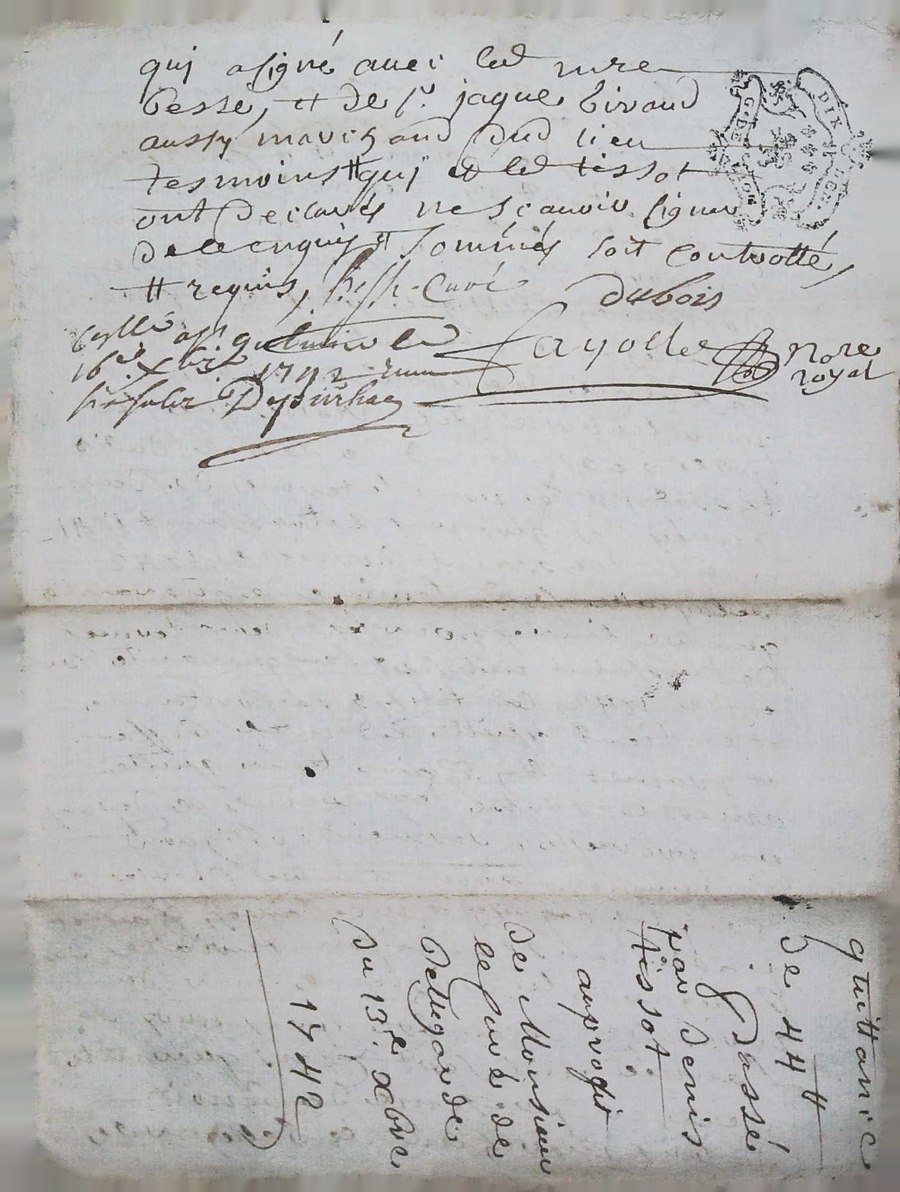 qui a signé avec led mre
besse, et de sr. jaque biraud
aussy marchand dud lieu
tesmoins qui et led tissot
ont declarés ne sçavoir signer
de ce enquis et sommés soit controllé,
et requis, curé dubois
16e Xbre 1742
Fayolle nore
royal
quittance
de 44 tt
passé
par denis
tissot
auproffit
de Monsieur
le curé de
Bellegarde
Du 13e xbre
1742